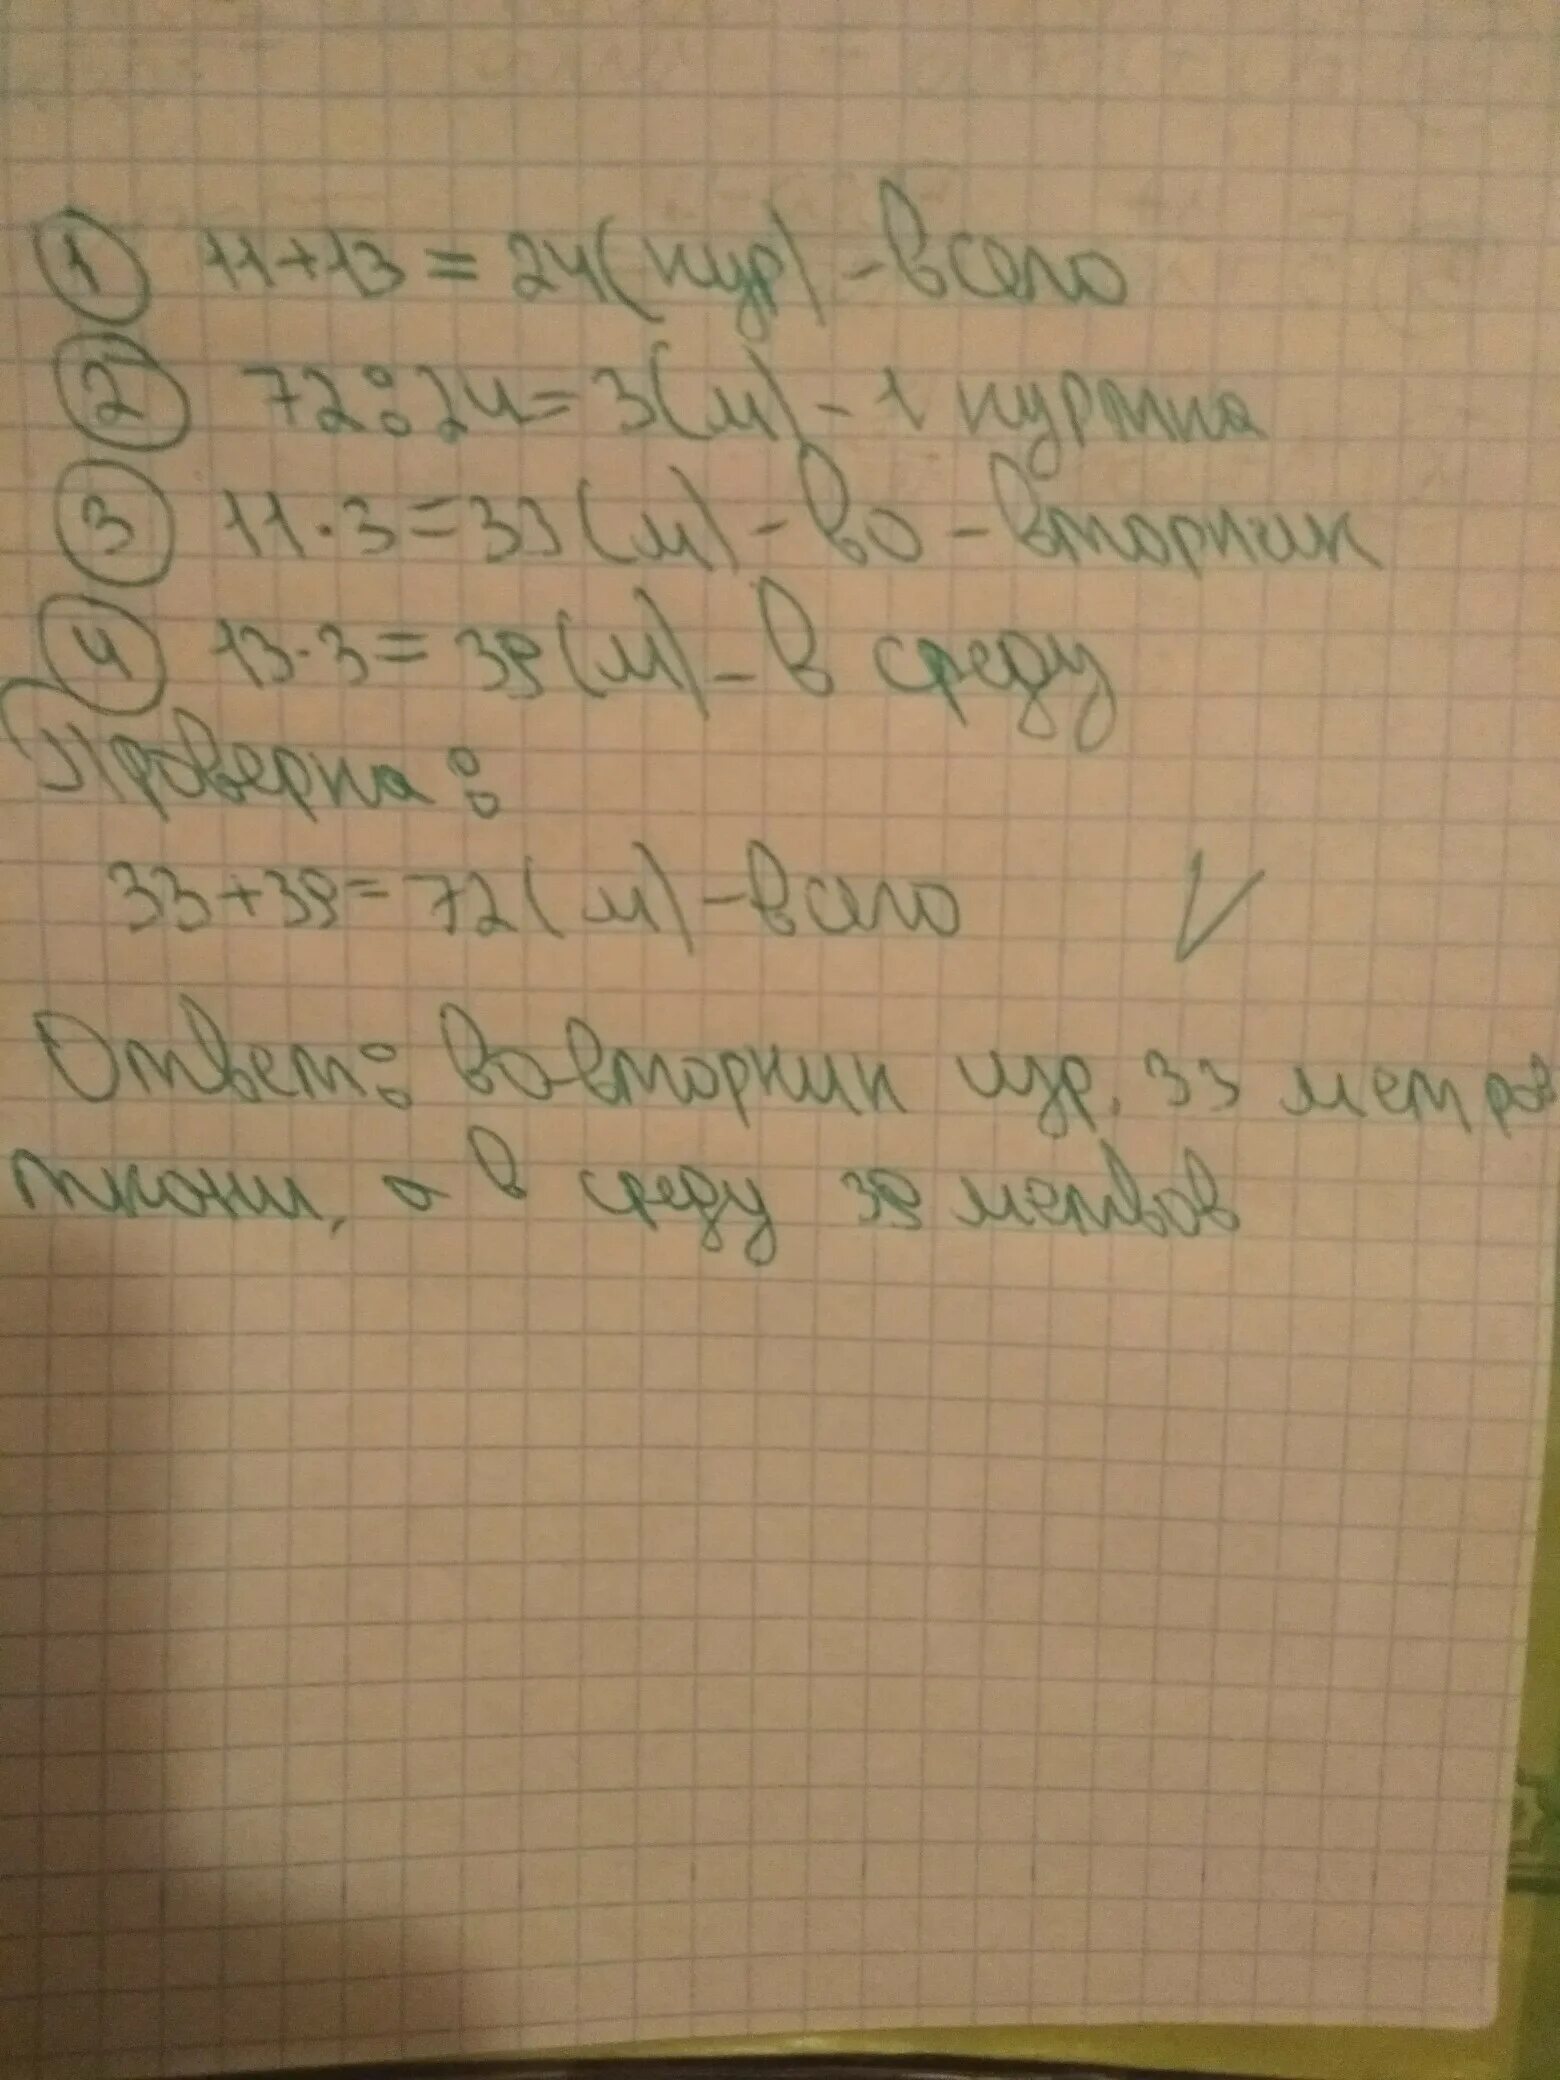 1 11+13=24(кур) - всего
2 72:24=3(м) - 1 куртка
3 11·3=33(м) - во-вторник
4 13·3=39(м) - в среду
Проверка:
33+39=72(м) - всего V
Ответ: во-вторник изр. 33 метров
ткани, а в среду 39 метвов